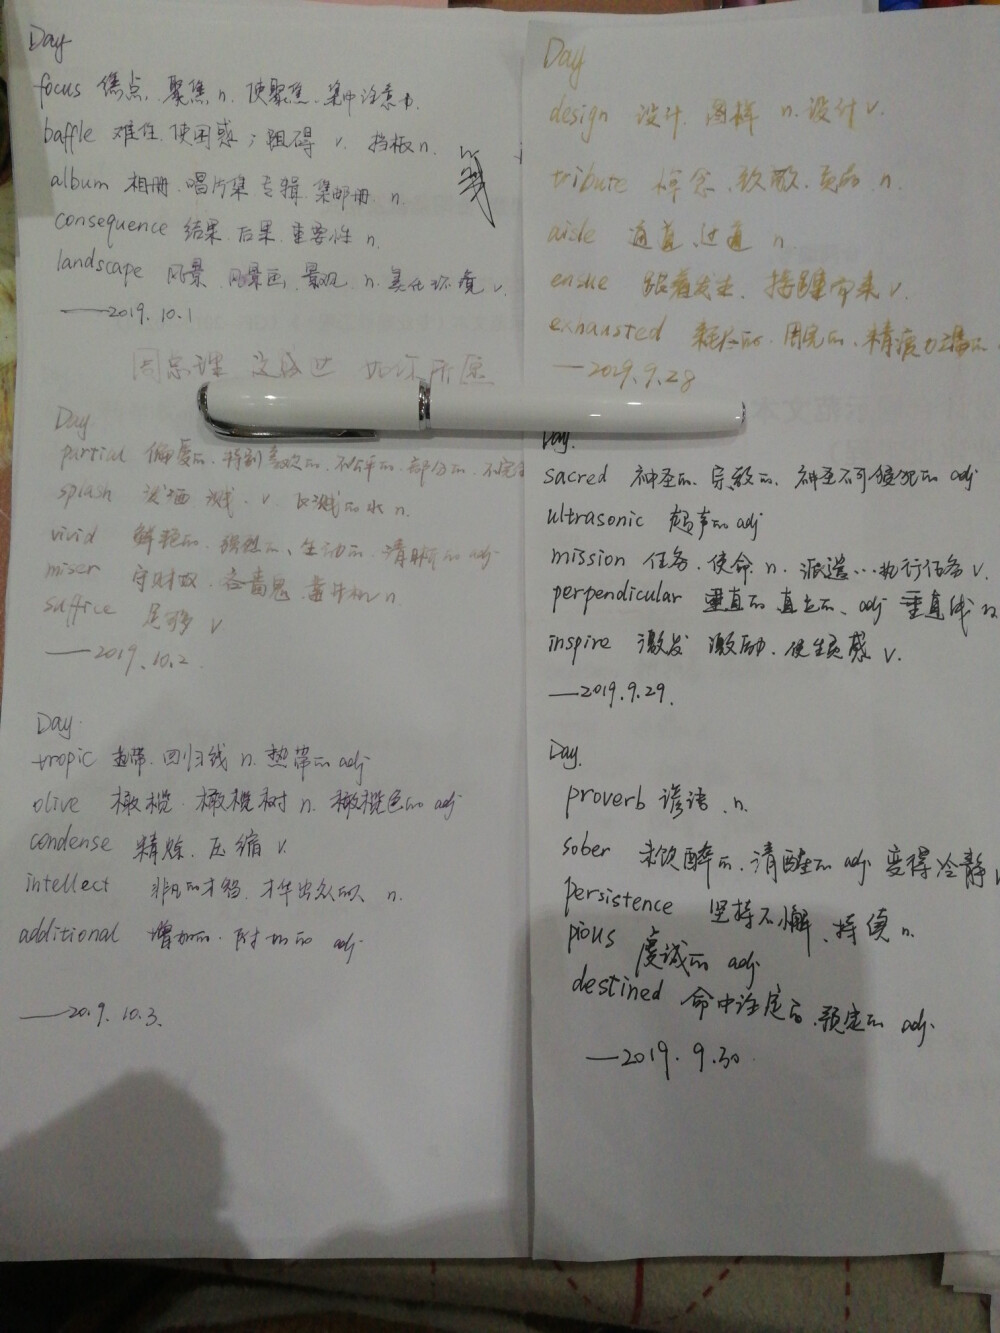 Day
focus 焦点、聚焦 n. 使聚焦、集中注意力.
baffle 难住.使困惑;阻碍 v. 挡板 n.
album 相册.唱片集 专辑.集邮册 n.
consequence 结果.后果.重要性 n.
landscape 风景.风景画.景观 n. 美化环境 v.
——2019.10.1
如你所愿
Day
partial 偏爱的.特别喜欢的.不公平的.部分的.
splash 泼洒 溅.v. 飞溅的水 n.
vivid 鲜艳的、强烈的、生动的.清晰的 adj
miser 守财奴.吝啬鬼. n.
suffice 足够 v
——2019.10.2.
Day.
tropic 热带.回归线 n. 热带的 adj
olive 橄榄.橄榄树 n. 橄榄色的 adj
condense 精炼.压缩 v.
intellect 非凡的才智.才华出众的人 n.
additional 增加的.附加的 adj
——2019.10.3.
Day
design 设计.图样 n.设计 v.
tribute 悼念、致敬、贡品 n.
aisle 通道.过道 n
ensue 跟着发生.接踵而来 v.
exhausted 耗尽的.用完的、精疲力竭的
——2019.9.28
Day.
sacred 神圣的.宗教的.神圣不可侵犯的 adj
ultrasonic 超声的 adj
mission 任务.使命 n. 派遣…执行任务 v.
perpendicular 垂直的 直立的、adj 垂直线 n
inspire 激发 激励.使生灵感 v.
——2019.9.29.
Day.
proverb 谚语.n.
sober 未饮醉的.清醒的 adj 变得冷静 v
persistence 坚持不懈、持续 n.
pious 虔诚的 adj
destined 命中注定的.预定的 adj.
——2019.9.30